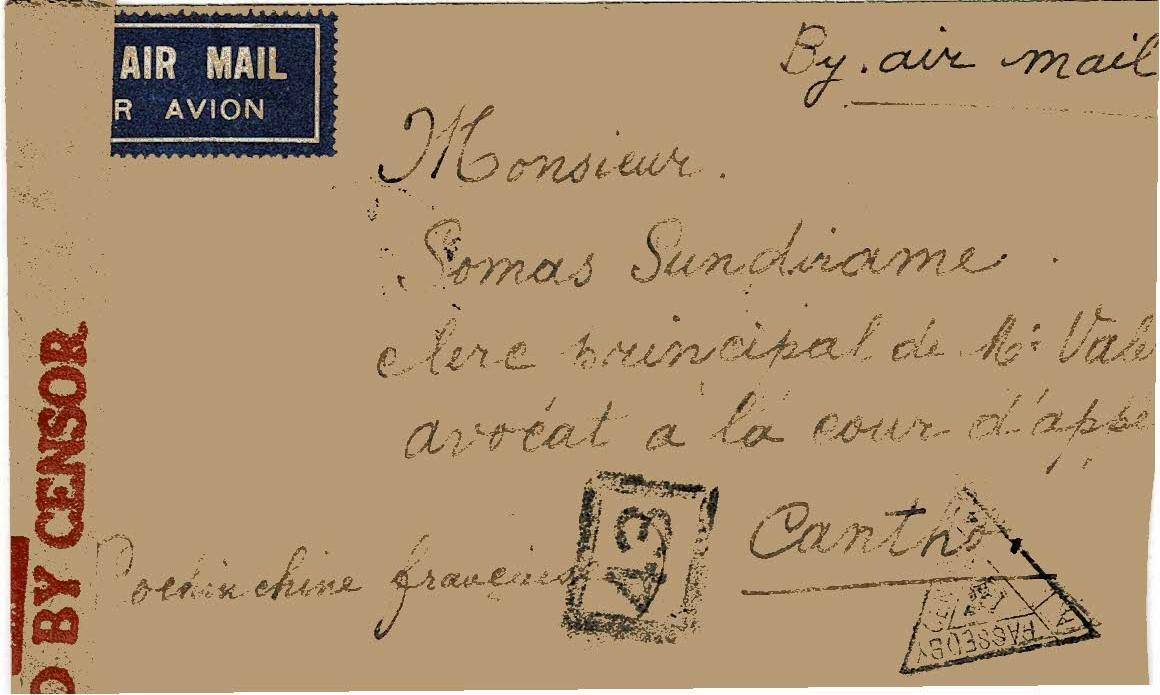 AIR MAIL
R AVION
By air mail
Monsieur.
Somas Sundirame.
clerc principal de Me Vale
avocat à la cour d'appe
Cantho
Cochinchine française
43
PASSED BY
D BY CENSOR